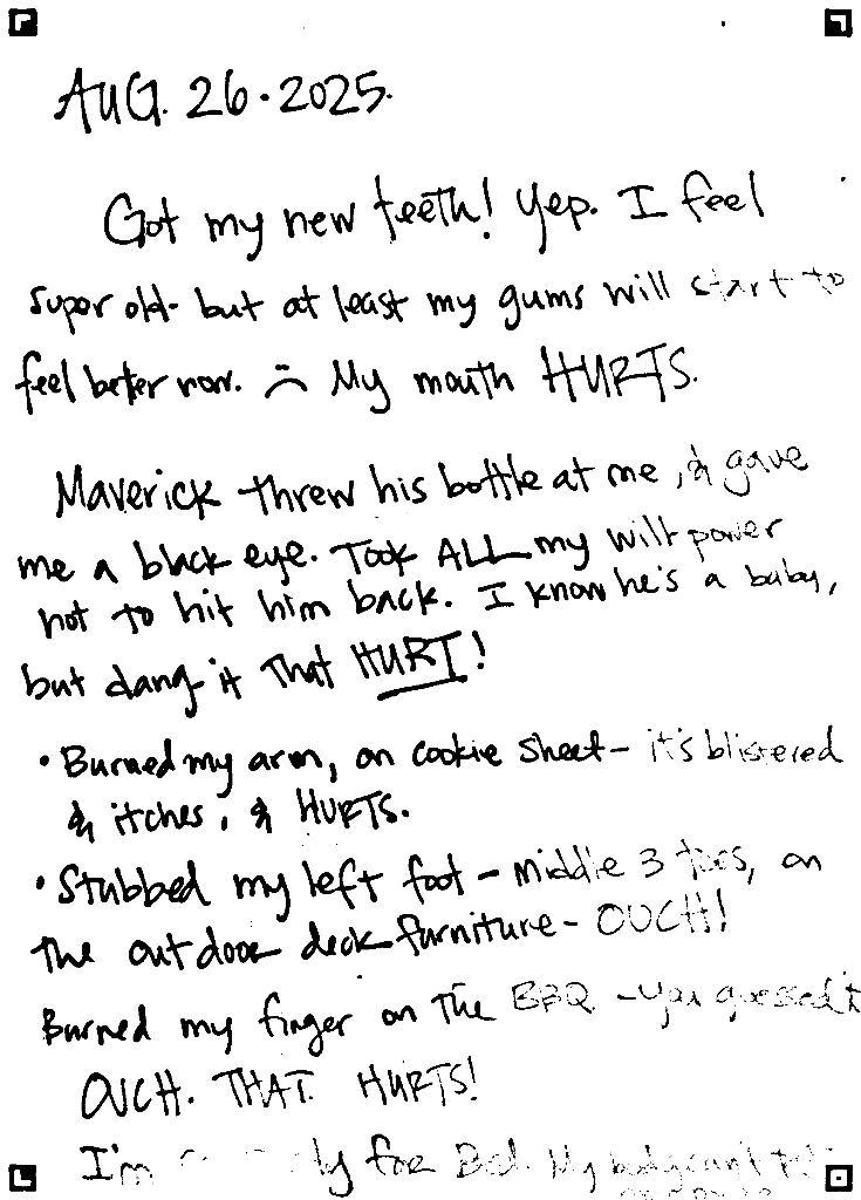 AUG. 26. 2025.
Got my new teeth! Yep. I feel
super old- but at least my gums will start to
feel better now. My mouth HURTS.
Maverick threw his bottle at me, & gave
me a black eye. Took ALL my will power
not to hit him back. I know he's a baby,
but dang it that HURT!
• Burned my arm, on cookie sheet - it's blistered
& itches, & HURTS.
• Stubbed my left foot - middle 3 toes, on
the outdoor deck furniture - OUCH!
Burned my finger on the BBQ - you guessed it
OUCH. THAT HURTS!
I'm for Bed. My body can't